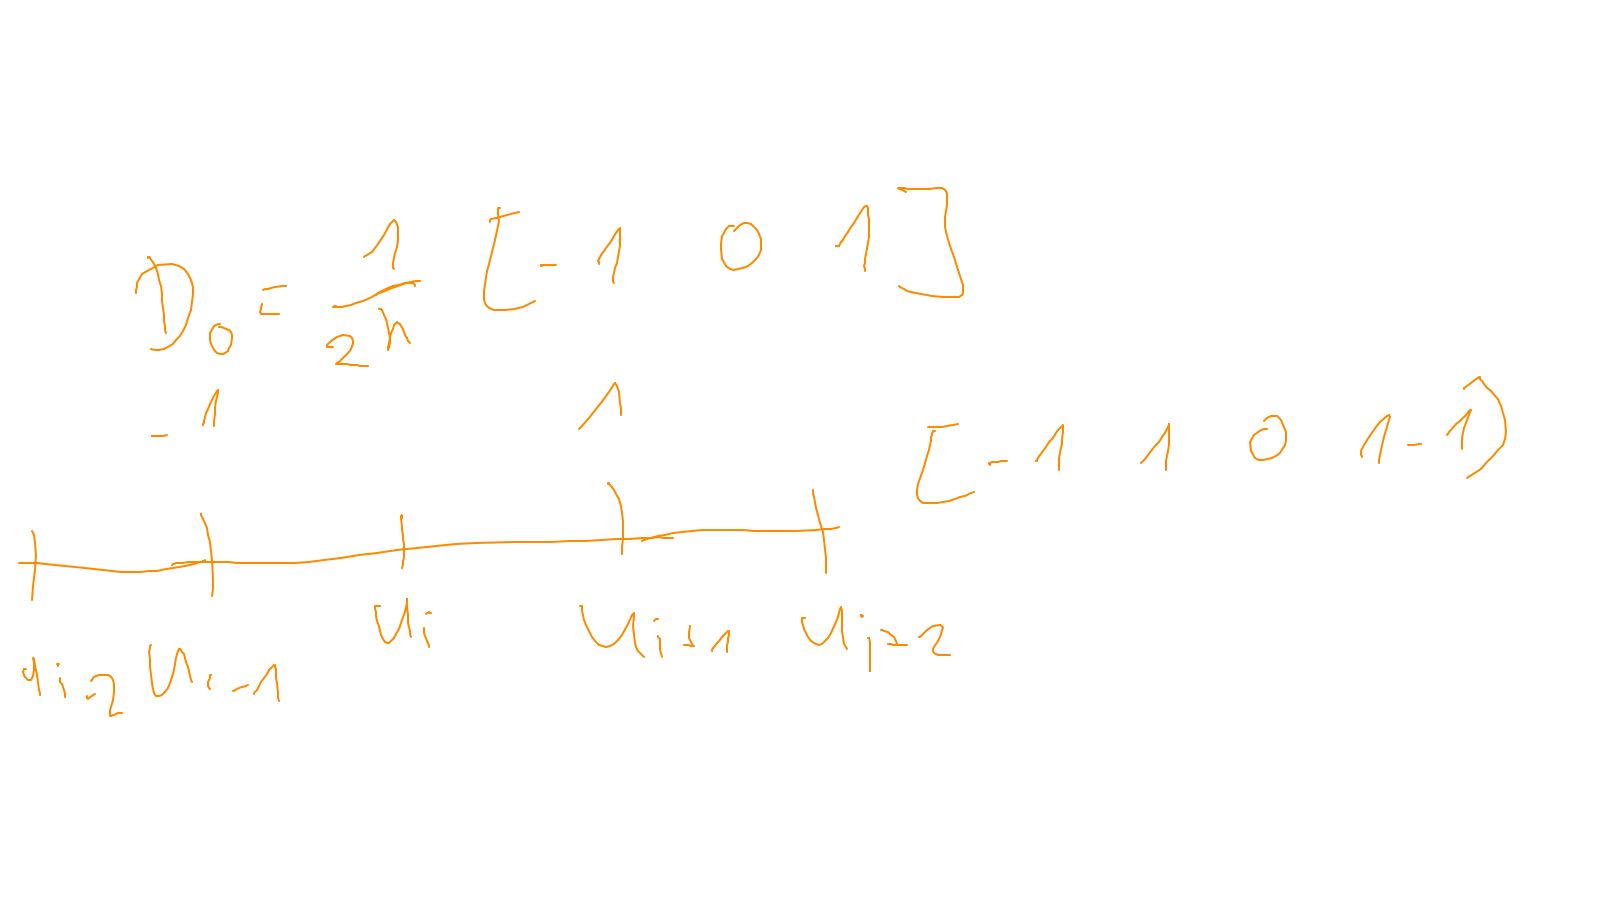 D₀ = 1/2h [-1 0 1]
-1 1
[-1 1 0 1 -1)
uᵢ₋₂ uᵢ₋₁ uᵢ uᵢ₊₁ uᵢ₊₂